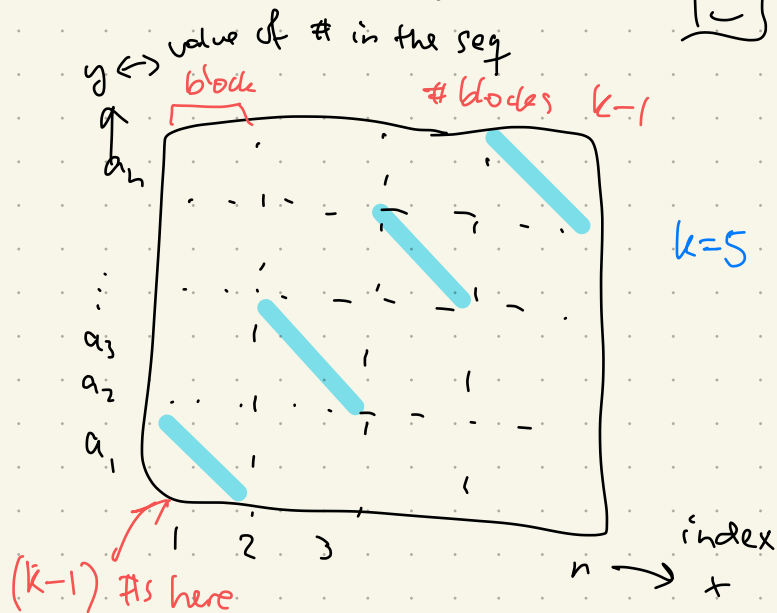 y ↔ value of # in the seq
block
# blocks k-1
an
k=5
⋮
a3
a2
a1
1 2 3
n → index
x
(k-1) #s here